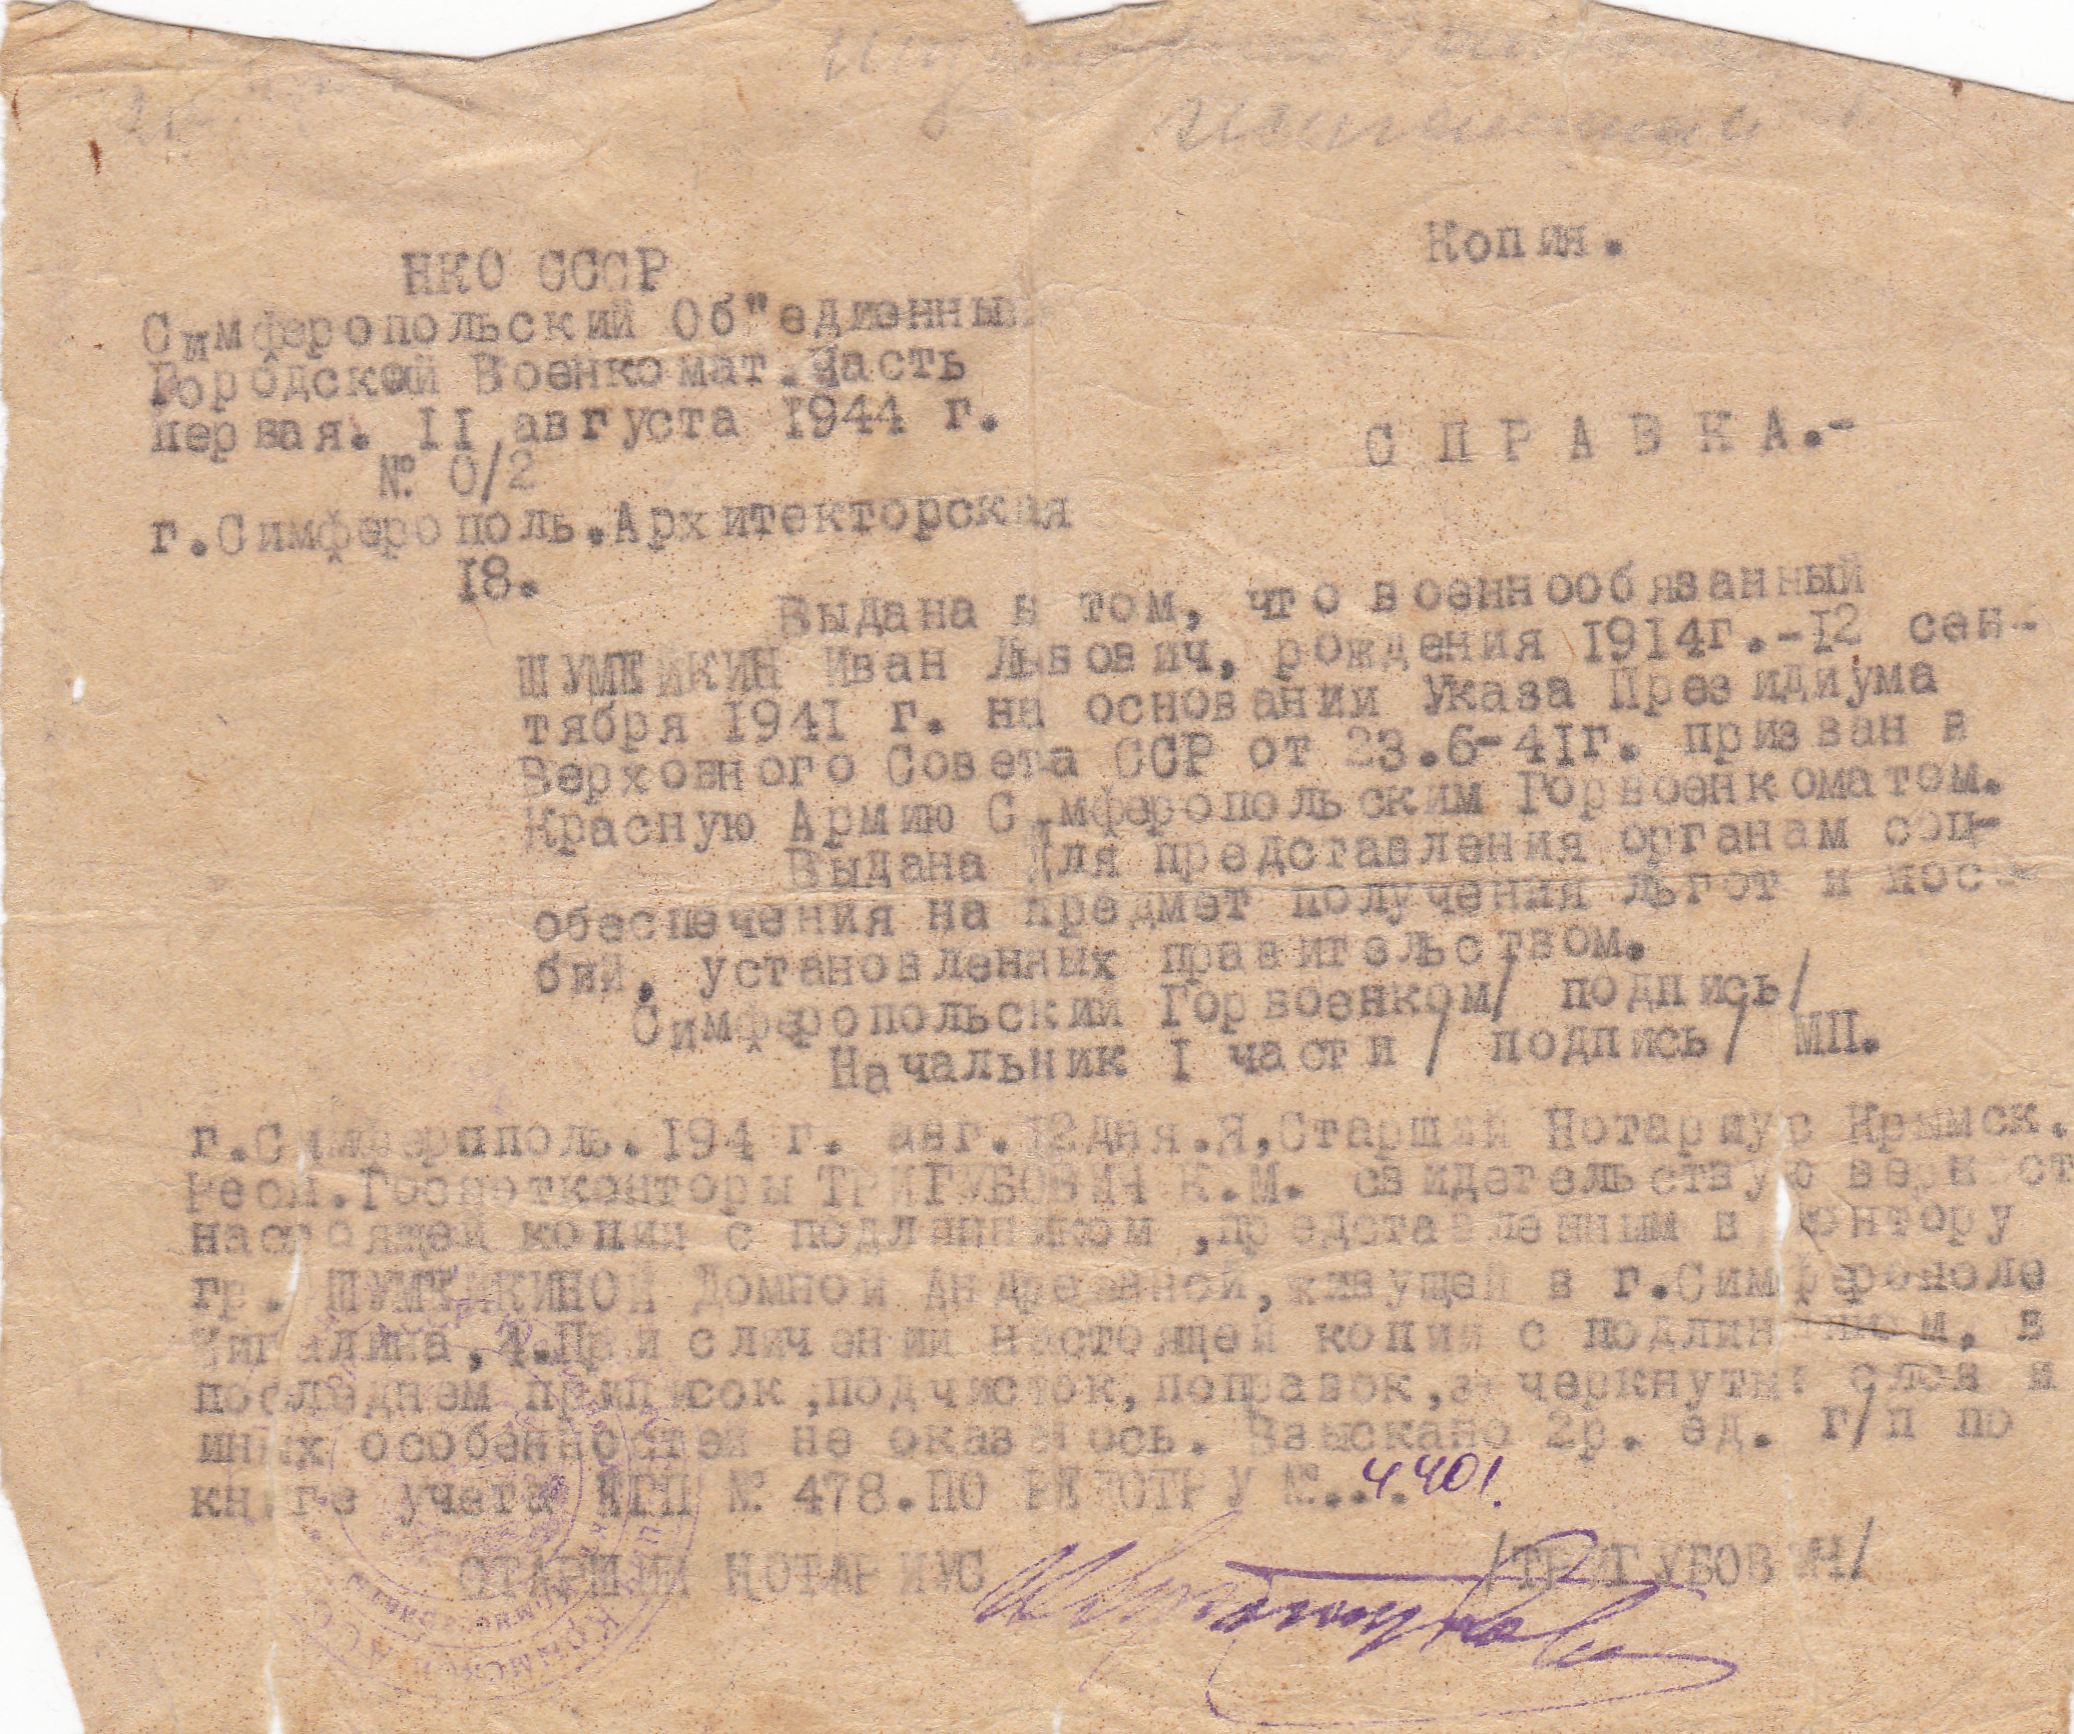 Копия.
НКО СССР
Симферопольский Об"едиэнный
Городской Военкомат.Часть
первая. II августа 1944 г.
№ 0/2
С П Р А В К А.-
г.Симферополь.Архитекторская
I8.
Выдана в том, что военнообязанный
ШУМЕЙКИН Иван Львович, рождения I9I4г.-I2 сен-
тября I94I г. на основании Указа Президиума
Верховного Совета ССР от 23.6-4Iг. призван в
Красную Армию Симферопольским Горвоенкоматом.
Выдана для представления органам соц-
обеспечения на предмет получения льгот и пос-
бий, установленных правительством.
Симферопольский Горвоенком/ подпись/
Начальник I части / подпись/ МП.
г.Симферпполь.I94 г. авг.I2дня.Я,Старший Нотариус Крымск.
Респ.Госнотконторы ТРИГУБОВИЧ К.М. свидетельствую верност
настоящей копии с подлинником ,представленным в контору
гр. ШУМЕЙКИНОЙ Домной Андреевной,живущей в г.Симферополе
4.При слячении настоящей копии с подлинником, в
последнем приписок,подчисток,поправок,зачеркнутых слов и
иных особенностей не оказалось. Взыскано 2р. ед. г/п по
книге учета ЕГП № 478.ПО РЕЕСТРУ №...4401.
СТАРШИЙ НОТАРИУС /ТРИГУБОВИЧ/